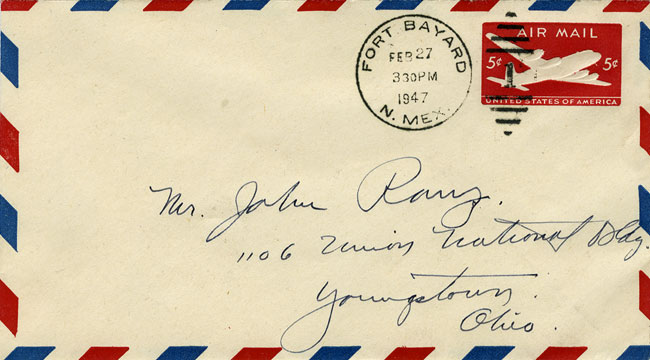 FORT BAYARD
FEB 27
330PM
1947
N. MEX.
1
AIR MAIL
5¢ 5¢
UNITED STATES OF AMERICA
Mr. John
1106 Union National Bldg.
Youngstown.
Ohio.